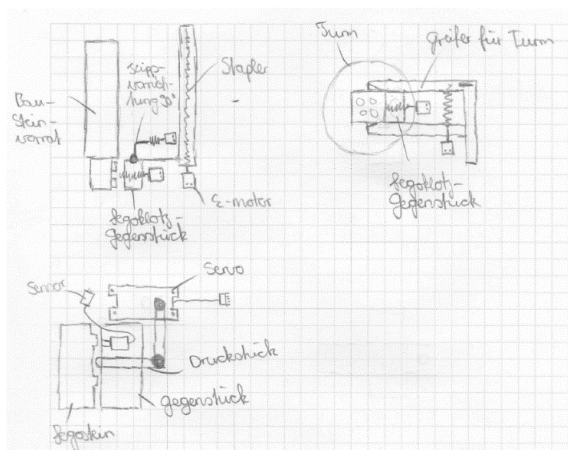 Bau-
stein-
vorrat
Kipp-
vorrich-
tung 90°
Stapler
E-motor
Legoklotz-
gegenstück
Turm
greifer für Turm
Legoklotz-
gegenstück
Sensor
Servo
Druckstück
gegenstück
Legostein